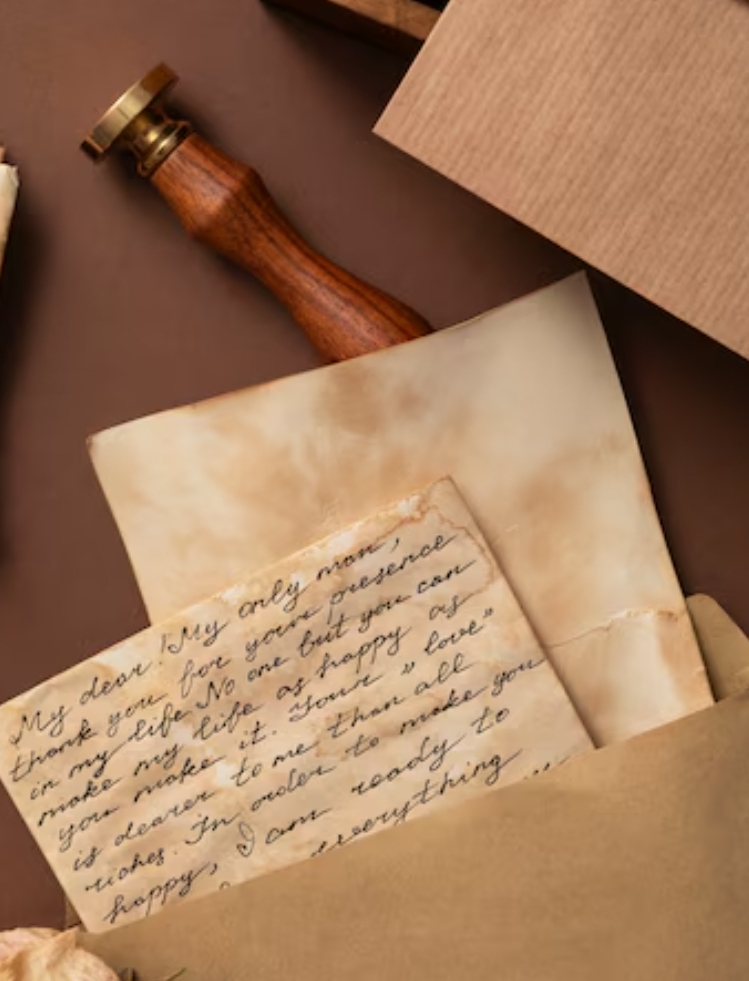 My dear! My only man,
thank you for your presence
in my life. No one but you can
make my life as happy as
you make it. Your "love"
is dearer to me than all
riches. In order to make you
happy, I am ready to
everything